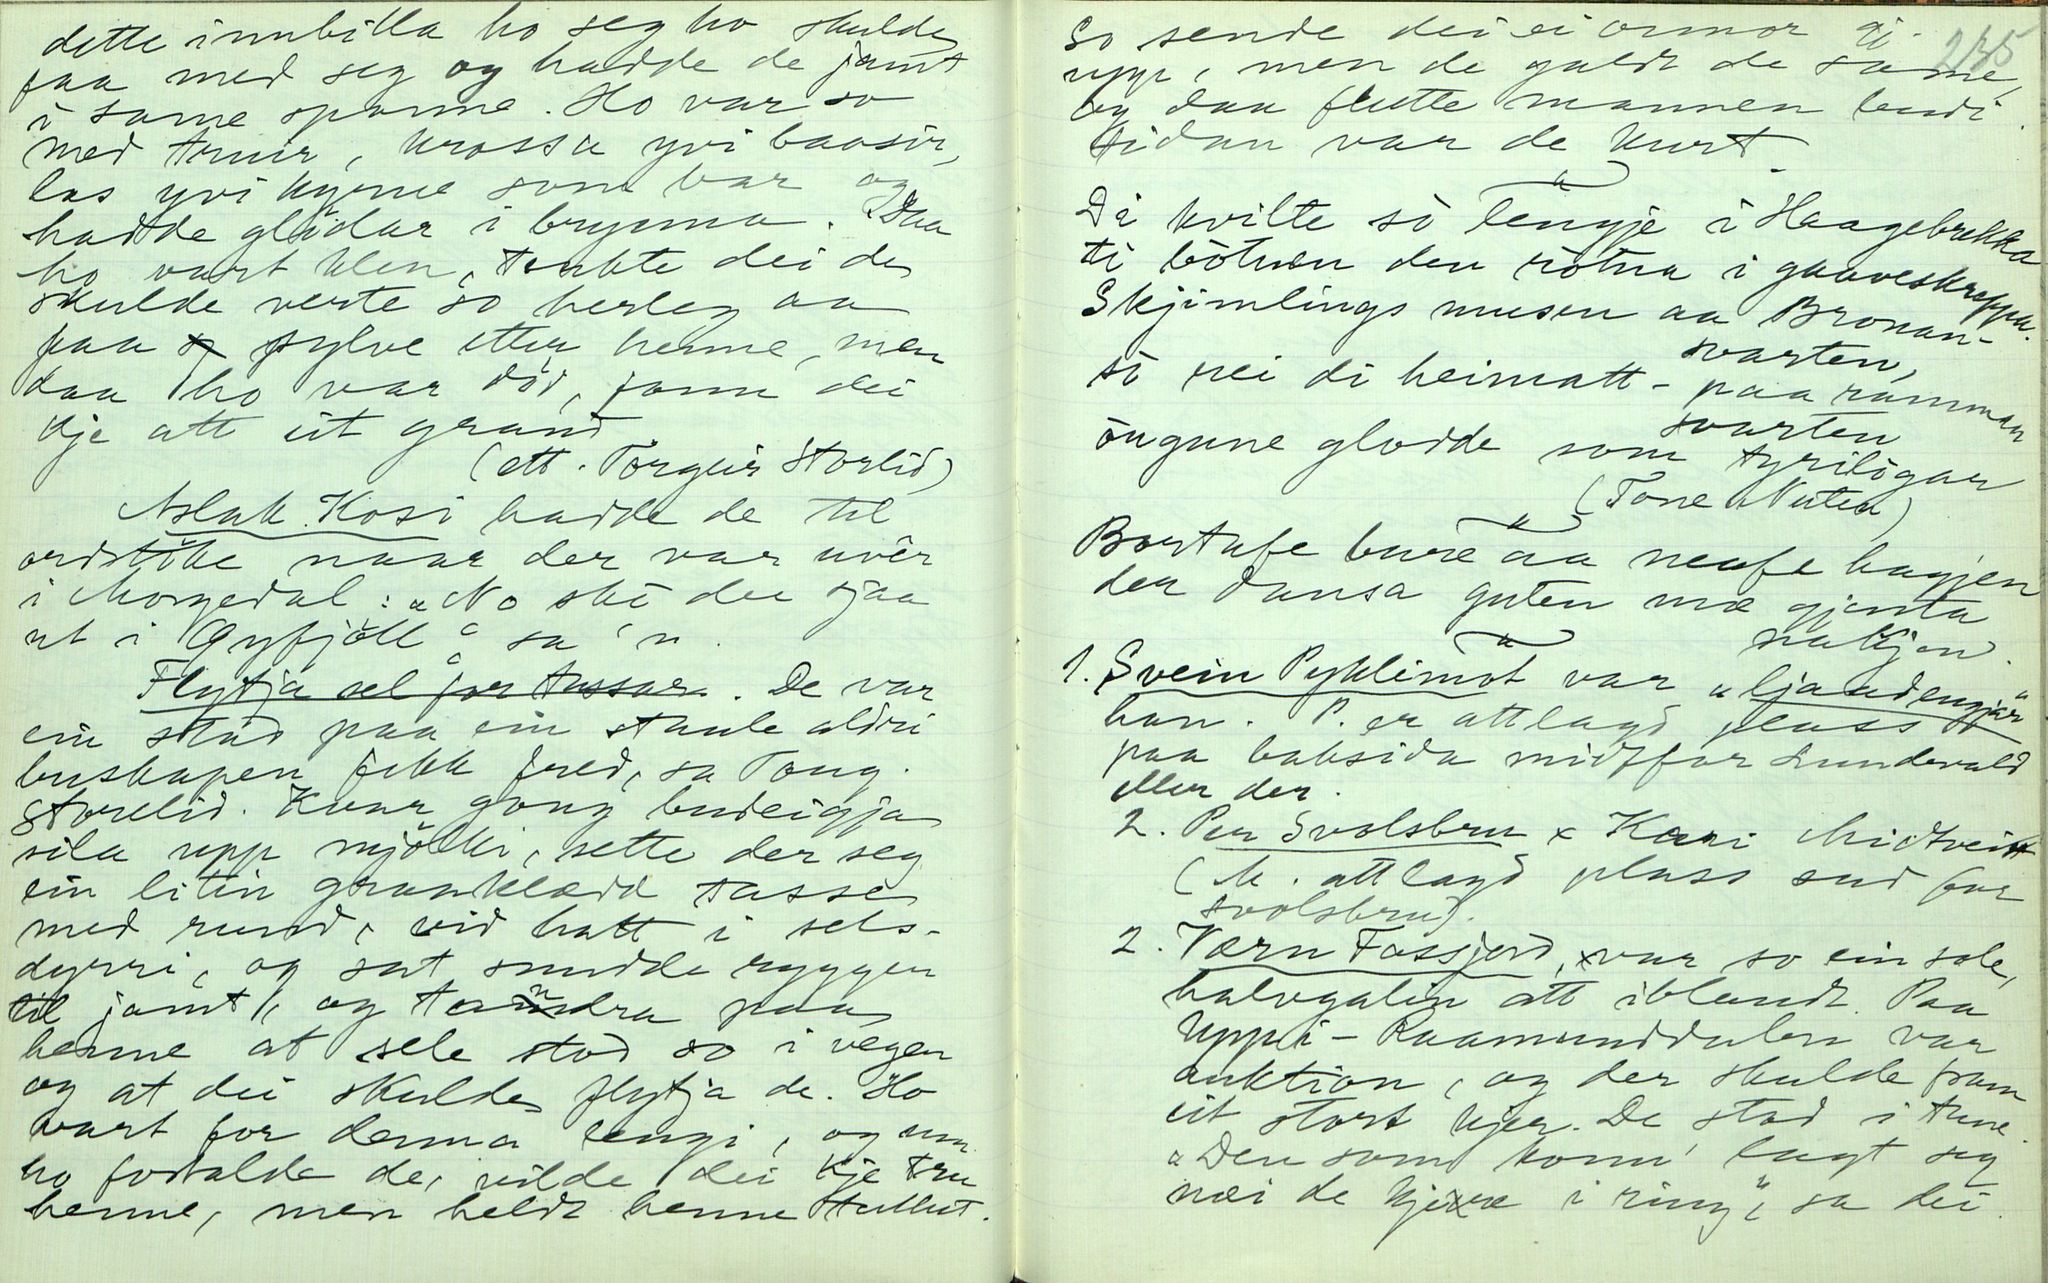 dette innbilla ho seg ho skulde
faa med seg og hadde de jamt
i same sponne. Ho var so
med truir, krossa yvi baasir,
las yvi kyrne som bar og
hadde glödar i brynna. Daa
ho vart klen, tenkte dei de
skulde verte so herleg aa
faa sylve etter henne, men
daa ho var död, fann dei
kje att eit grand
(ett. Torgeir Storlid)
Aslak Kosi hadde de til
ordstöke naar der var uvêr
i Morgedal: "No ski dei sjaa
ut i Gyfjöll" sa 'n.
Flytja sel for tussar. De var
ein stad paa ein staule aldri
buskapen fekk fred, sa Torg.
Storelid. Kvar gong budeigja
sila upp mjölki, sette der seg
ein liten graaklædd tusse
med rund, vid hatt i sels-
dyrri, og sat snudde ryggen
til jamt, og
henne at sele stod so i vegen
og at dei skulde flytja de. Ho
vart for denna lengi, og um
ho fortalde de, vilde dei kje tru
henne, men heldt henne tullut.
235
So sende dei ei onnor gj.
upp, men de galdt de same,
og daa flutte mannen budi.
Sidan var de kurt.
Di kvilte so lengje i Haagebrekka
ti bötnen den rötna i gaaveskreppa.
Skjimlings musen aa Bronan-
svarten,
so rei di heimatt - paa ramman
svarten
öugune glodde som tyrilögar
(Tone Nuten)
Bortafe bure aa neafe hagjen
der dansa guten mæ gjenta
nakjen.
1. Svein Pyklimot var "ljaadengjar"
han. P. er attlagd plass
paa baksida midt for Lundevald
eller der.
2. Per Svolsbru x Kari Midtveitt
(M. attlagd plass sud for
Svolsbru).
2. Værn Fossjord, var so ein sole,
halvgalin att iblandt. Paa
Uppi-Raamunddalen var
auktion, og der skulde fram
eit stort kjer. De stod i tune.
"Den som konn' lagt seg
næi de kjere i ring", sa dei.